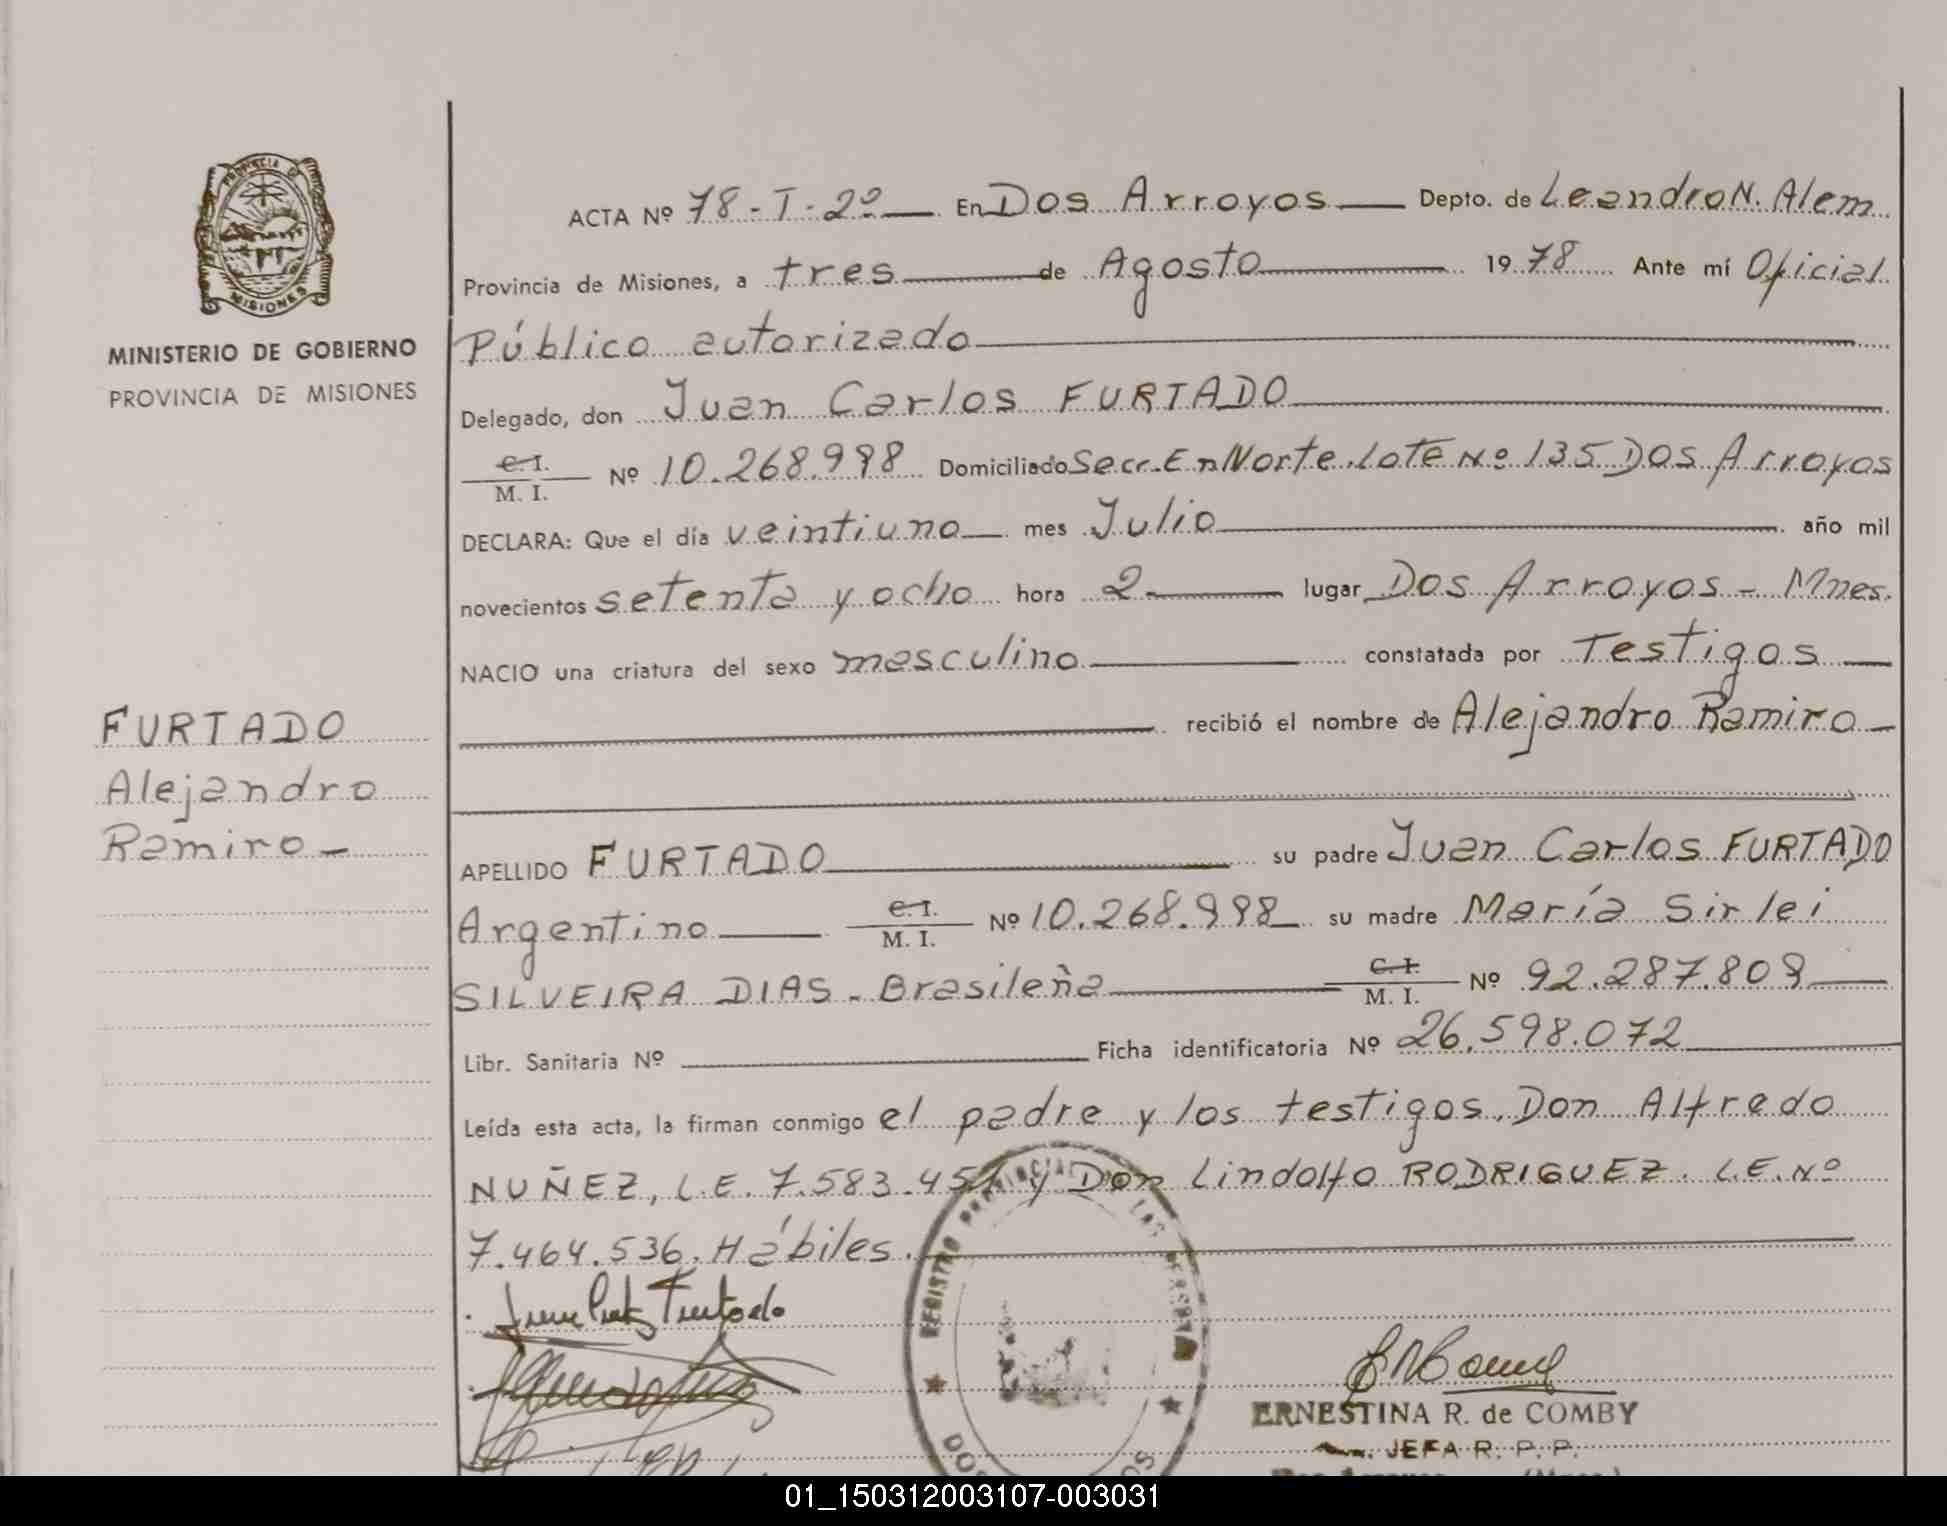 PROVINCIA D
MISIONES
MINISTERIO DE GOBIERNO
PROVINCIA DE MISIONES
FURTADO
Alejandro
Ramiro -
ACTA Nº 78 - T - 2º En Dos Arroyos Depto. de Leandro N. Alem
Provincia de Misiones, a tres de Agosto 1978 Ante mí Oficial
Público autorizado
Delegado, don Juan Carlos FURTADO
C. I.
M. I. Nº 10.268.998 Domiciliado Secc. En Norte. Lote Nº 135 Dos Arroyos
DECLARA: Que el día veintiuno mes Julio año mil
novecientos setenta y ocho hora 2 lugar Dos Arroyos - Mnes.
NACIO una criatura del sexo masculino constatada por Testigos
recibió el nombre de Alejandro Ramiro
APELLIDO FURTADO su padre Juan Carlos FURTADO
Argentino C. I. M. I. Nº 10.268.998 su madre María Sirlei
SILVEIRA DIAS - Brasileña C. I. M. I. Nº 92.287.809
Libr. Sanitaria Nº Ficha identificatoria Nº 26.598.072
Leída esta acta, la firman conmigo el padre y los testigos, Don Alfredo
NUÑEZ, L.E. 7.583.451 y Don Lindolfo RODRIGUEZ. L.E. Nº
7.464.536. Hábiles.
REGISTRO PROVINCIAL LAS PERSONAS
ERNESTINA R. de COMBY
JEFA R. P. P.
01_150312003107-003031